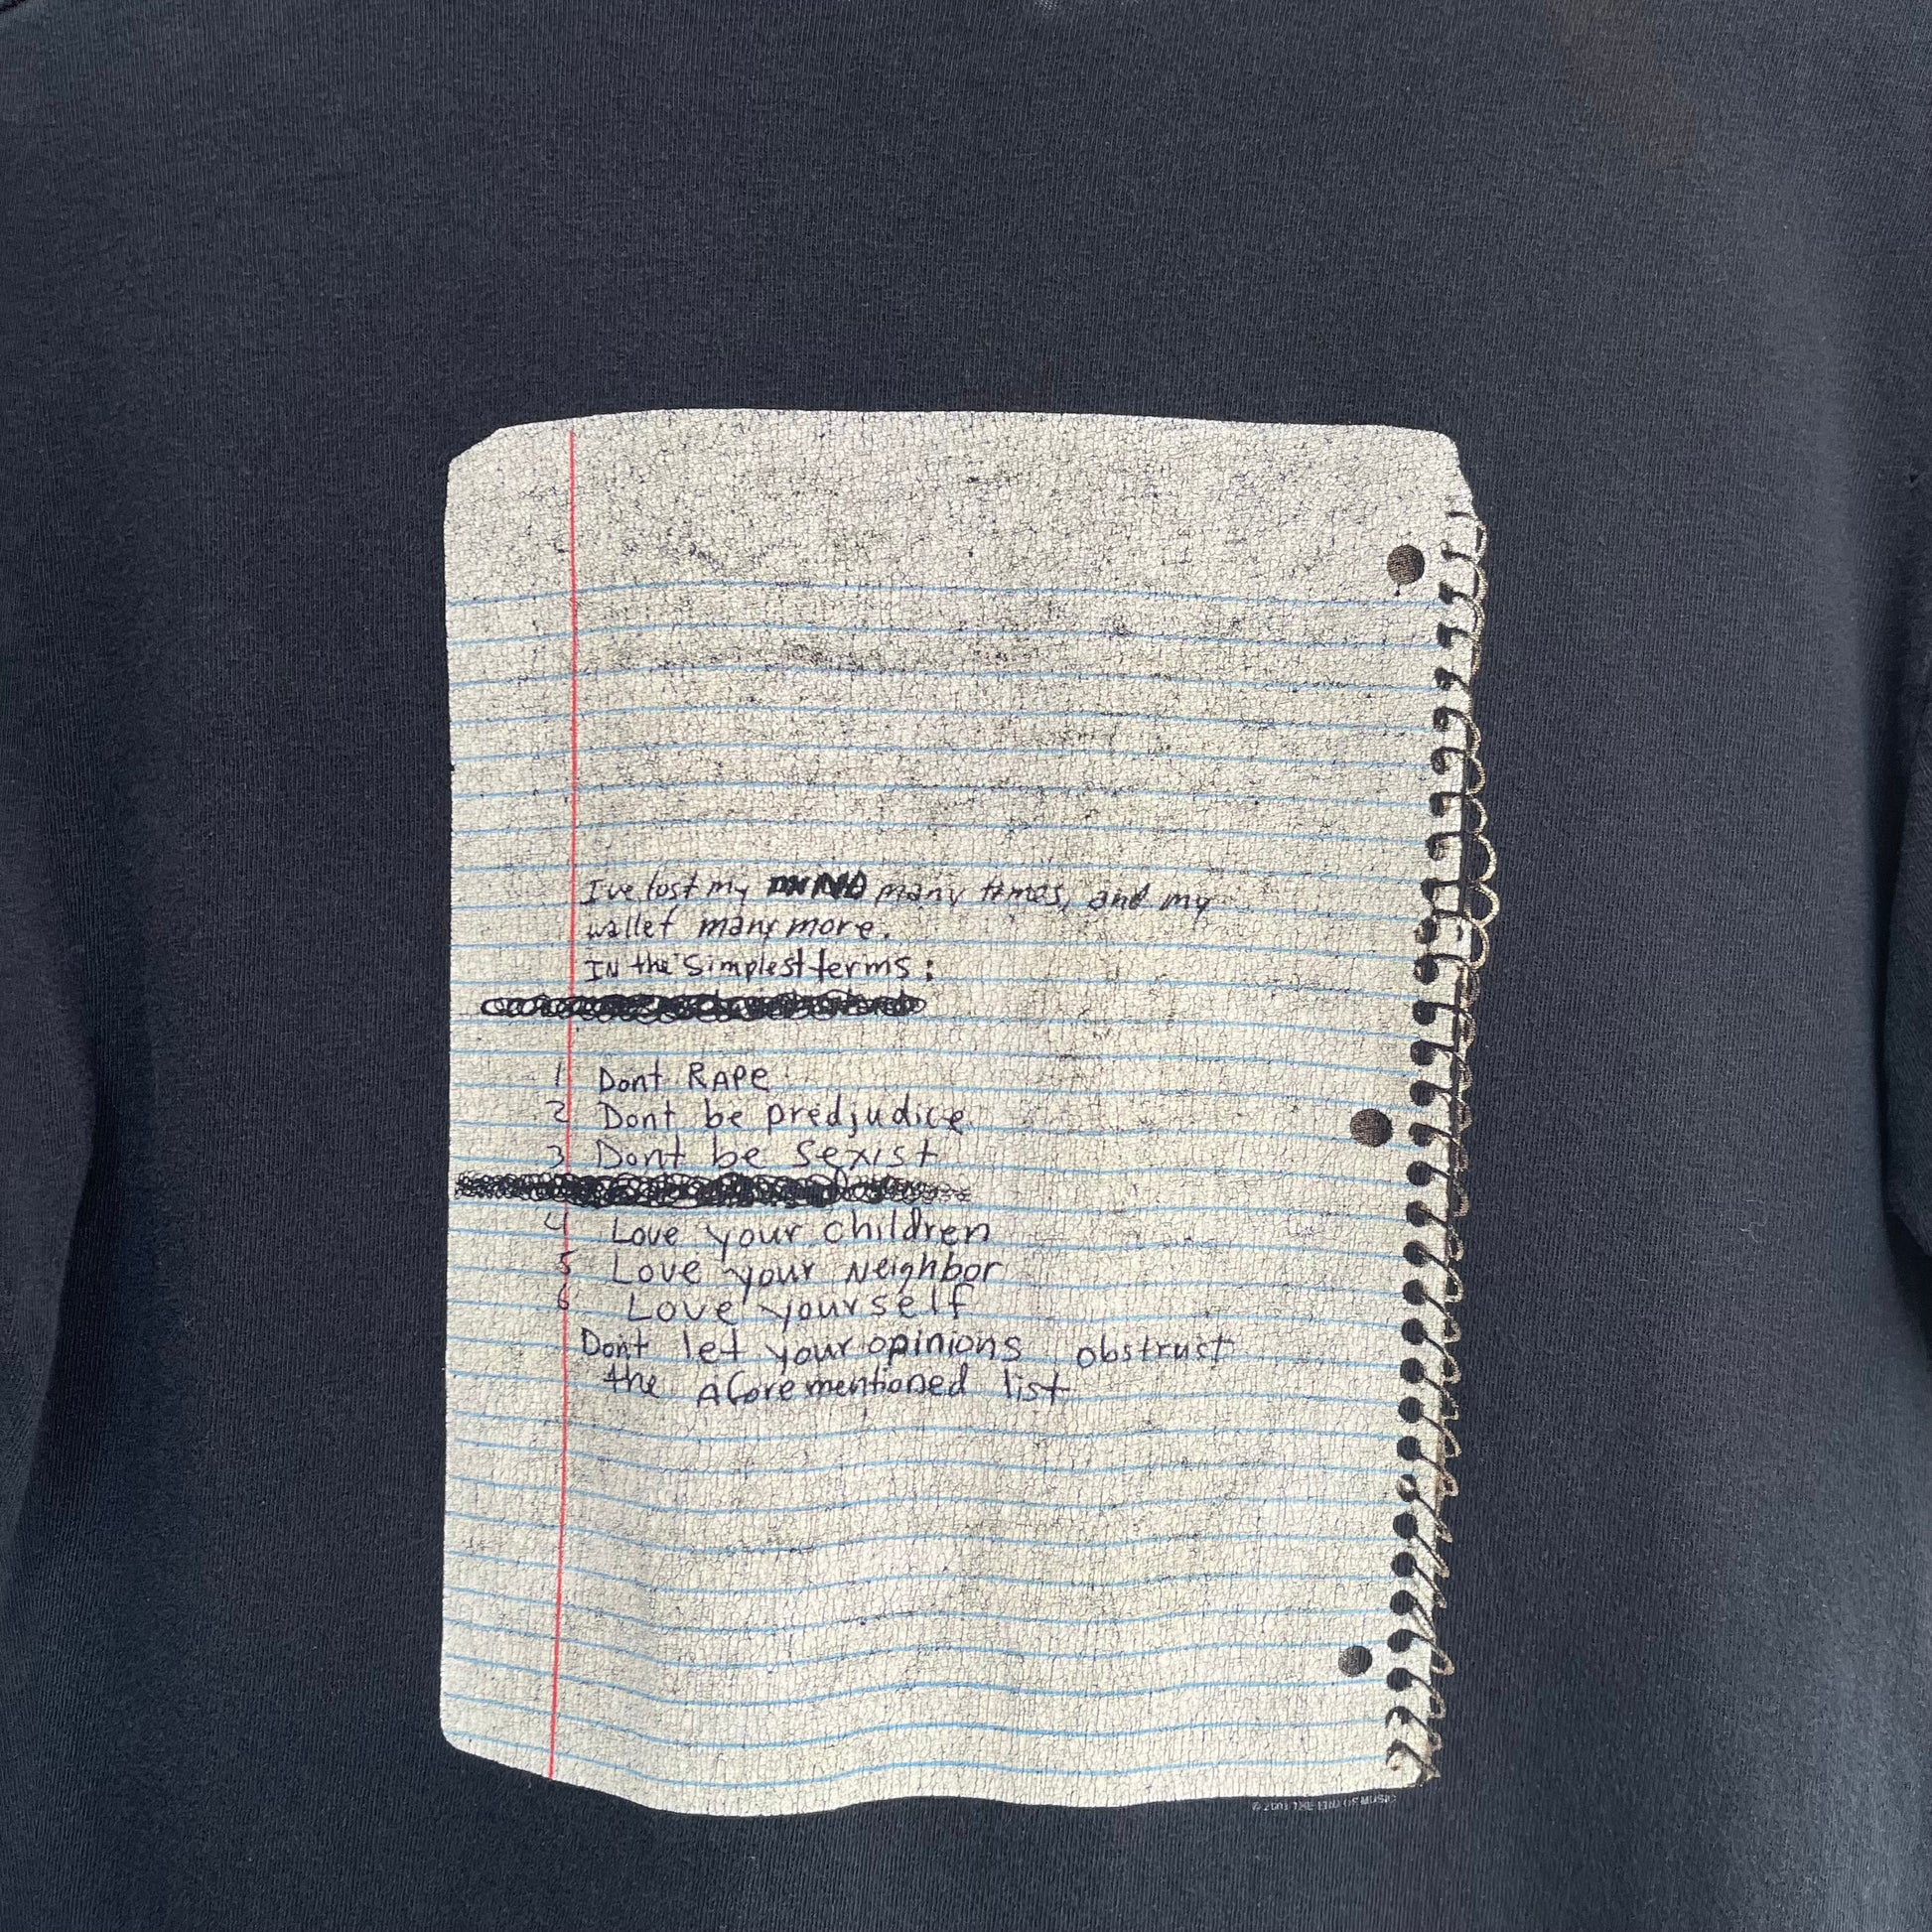 I've lost my MIND many times, and my
wallet many more.
IN the simplest terms:
1 Dont RAPe
2 Dont be predjudice
3 Dont be sexist
4 Love your children
5 Love your Neighbor
6 Love yourself
Don't let your opinions obstruct
the aforementioned list